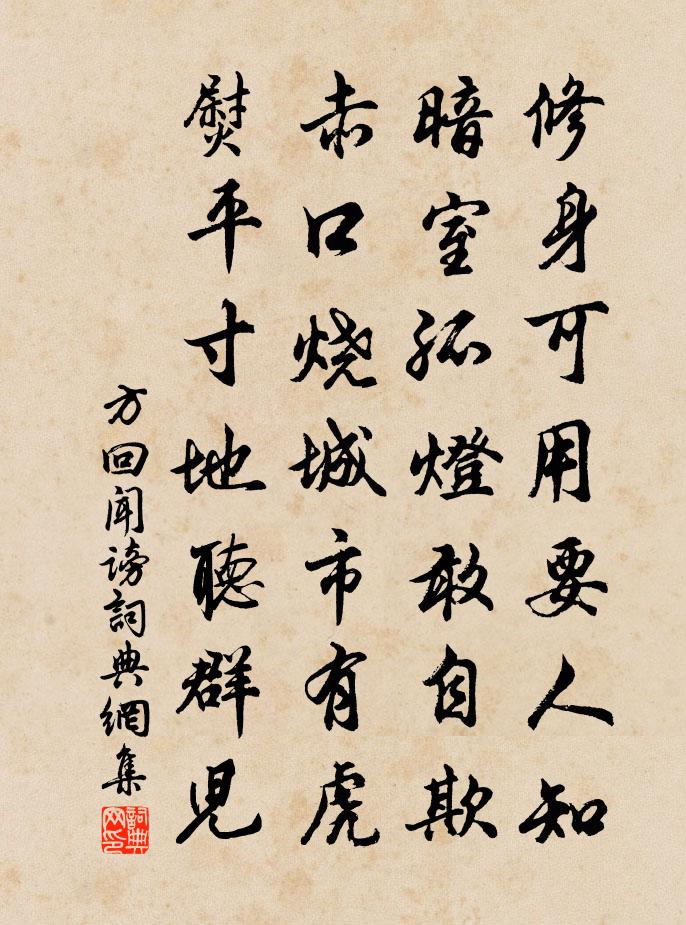 修身可用要人知
暗室孤燈敢自欺
赤口燒城市有虎
熨平寸地聽群児
方回聞謗詞典網集
詞典網印